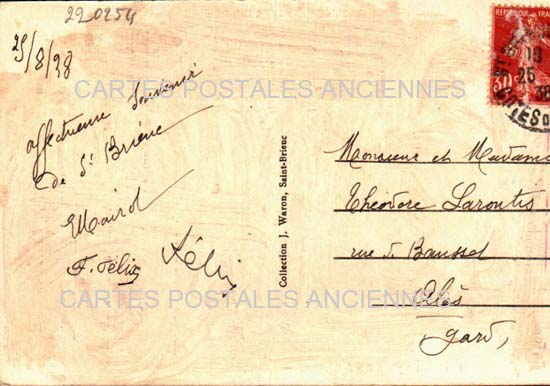 220254
25/8/38
CARTES POSTALES ANCIENNES
affectueux Souvenir
de St Brieuc
F. Félix
Félix
Collection J. Waron, Saint-Brieuc
REPUBLIQUE FRA
30
19
25
38
Monsieur et Madame
Théodore Laroutis
rue de Baussel
Alès
Gard
CARTES POSTALES ANCIENNES